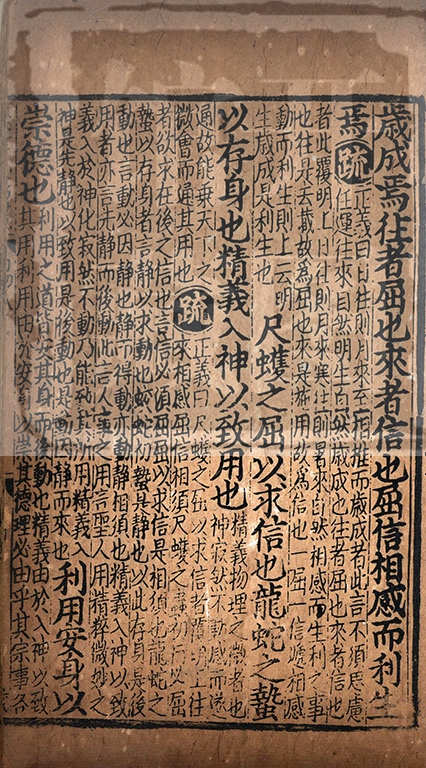 歳成焉往者屈也來者信也屈信相感而利生
焉疏正義曰日往則月來至相推而歳成者此言不須思慮
任運往來自然明生自然歳成也往者屈也來者信也
者此覆明上日往則月來寒往則暑來自然相感而生利之事
也往是去藏故為屈也來是施用故為信也一屈一信遞相感
動而利生則上云明
生歳成是利生也
尺蠖之屈以求信也龍蛇之蟄
以存身也精義入神以致用也精義物理之微者也
神寂然不動感而遂
通故能乘天下之
微會而通其用也
疏正義曰尺蠖之屈以求信者覆明上往
來相感屈信相須尺蠖之蟲初行必屈
者欲求在後之信也言信必須屈屈以求信是相須也龍蛇之
蟄以存身者言靜以求動也蛟蛇初蟄是靜也以此存身是後
動也言動必因靜也靜而得動亦動靜相須也精義入神以致
用者亦言先靜而後動此言人事之用言聖人用精粹微妙之
義入於神化寂然不動乃能致其所用精義入
神是先靜也以致用是後動也是動因靜而來也
利用安身以
崇德也利用之道皆安其身而後動也精義由於入神以致
其用利用由於安身以崇其德理必由乎其宗事各